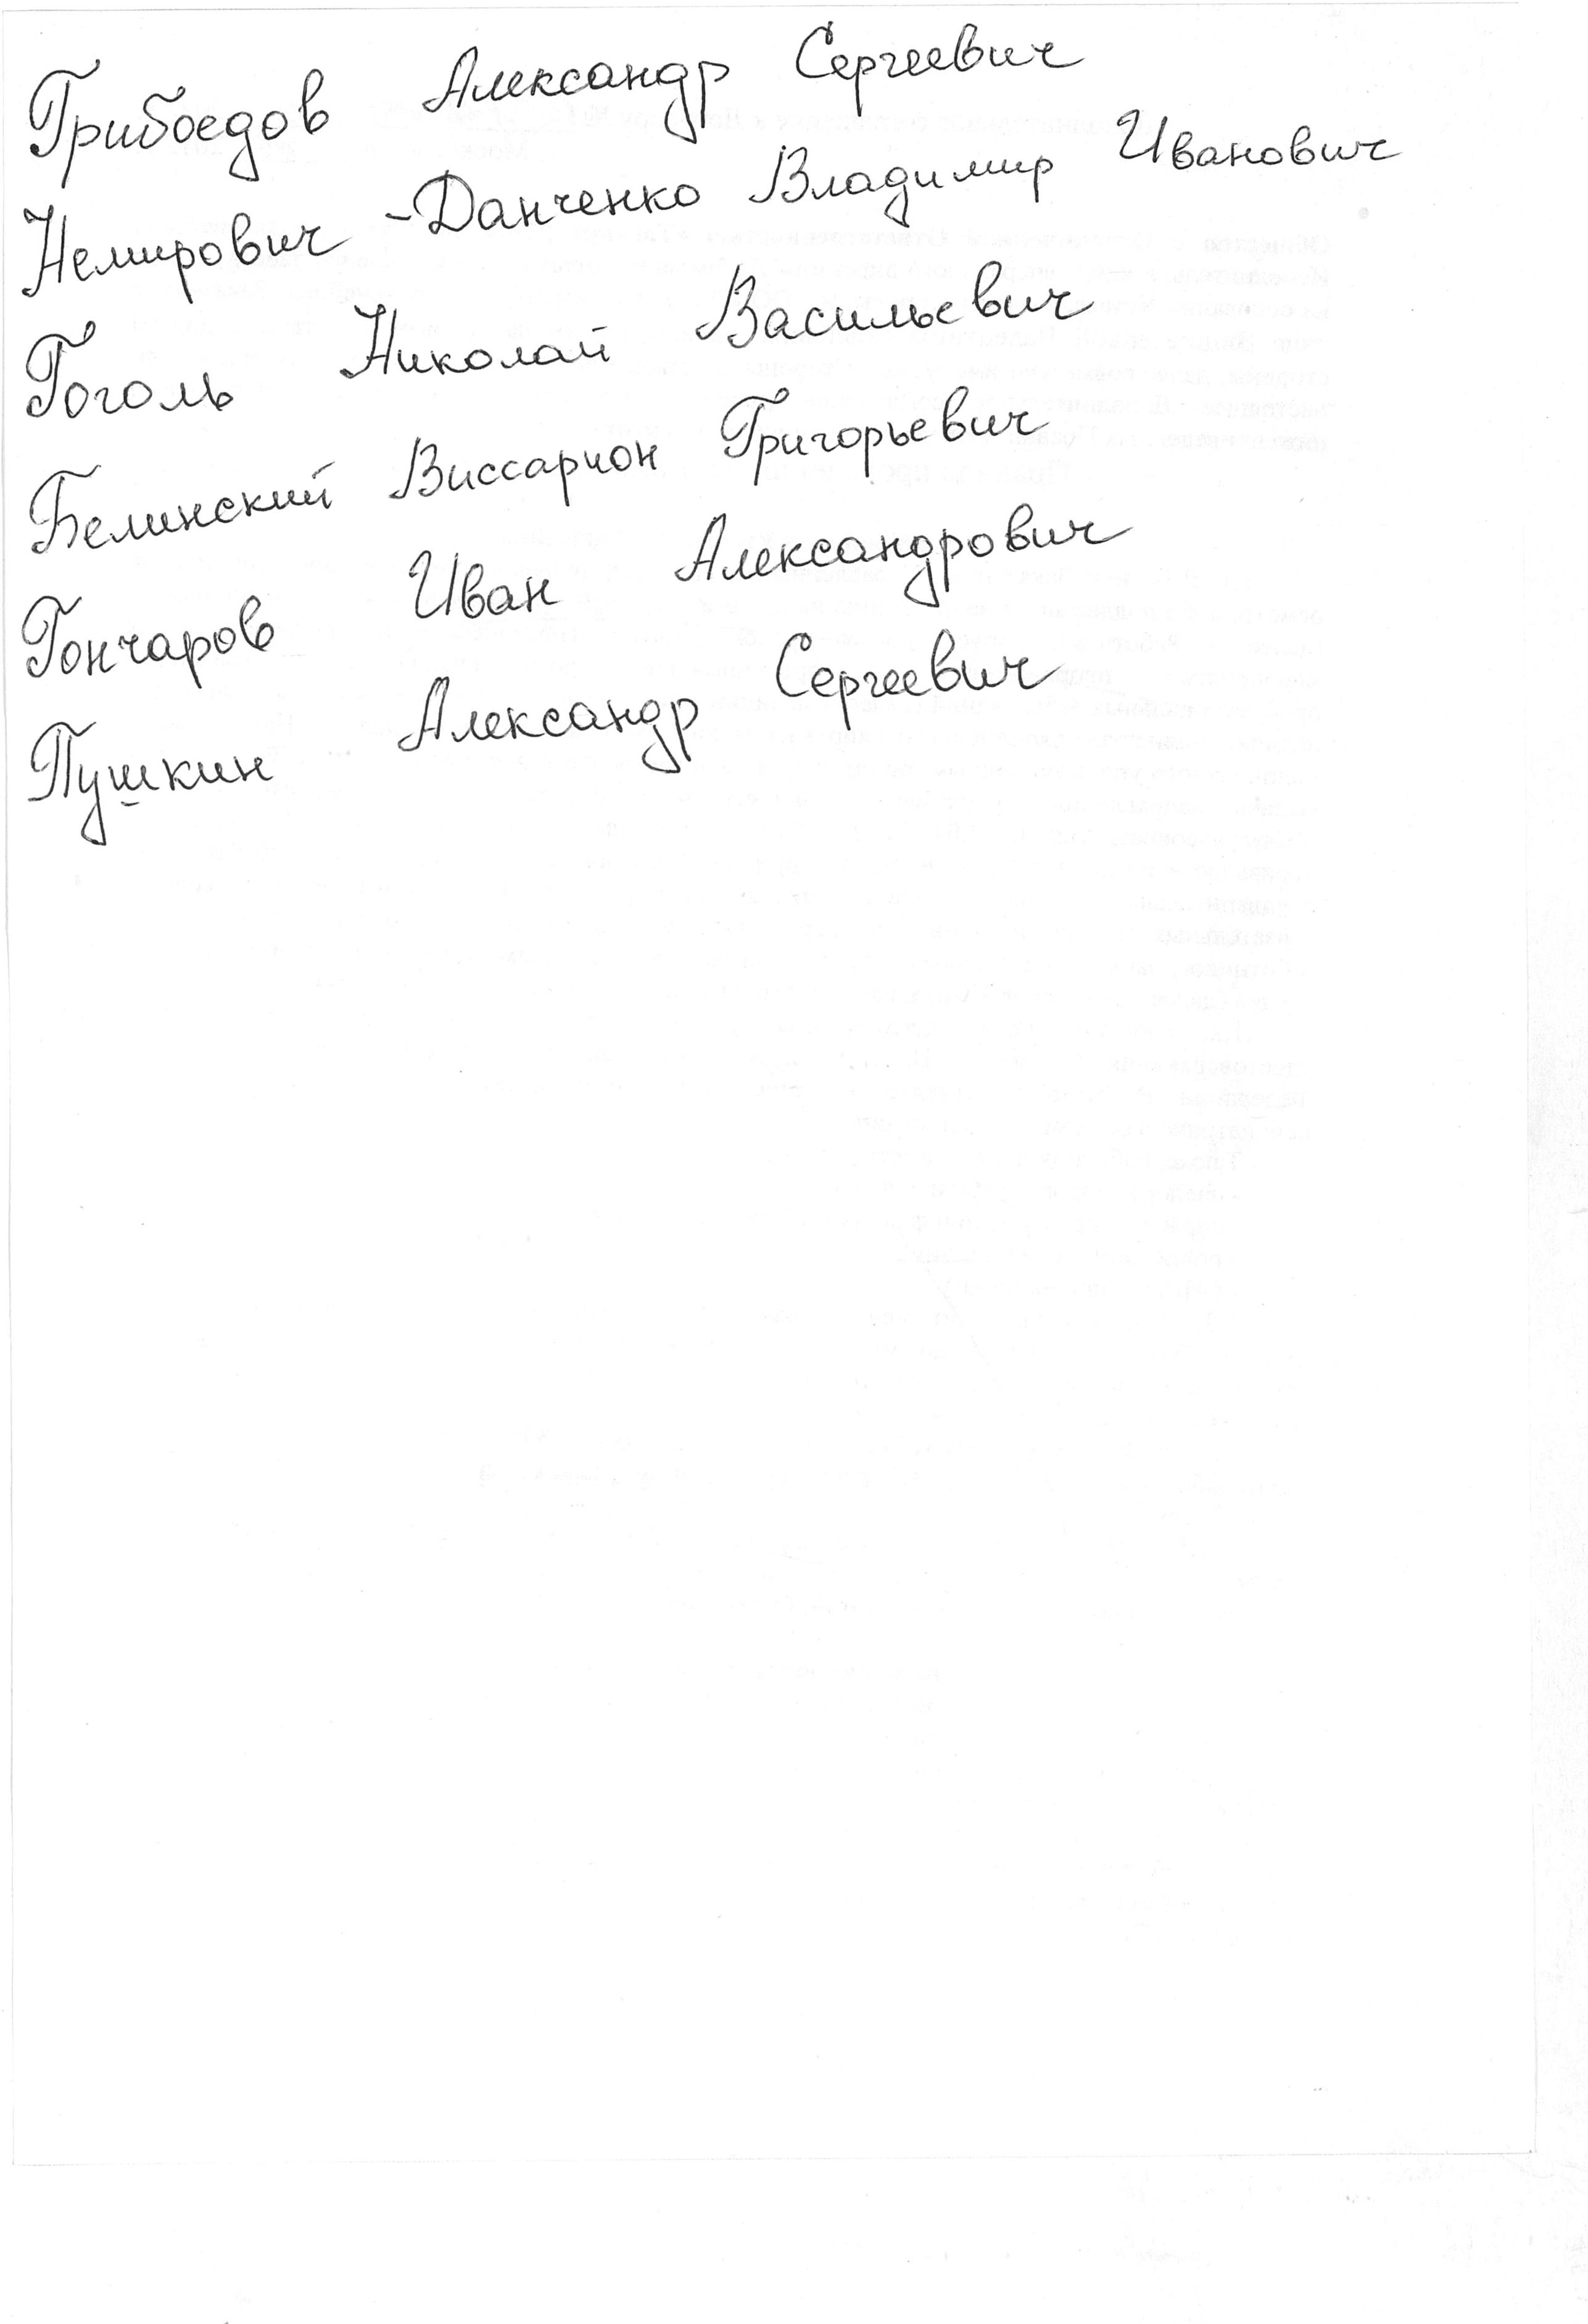 Грибоедов Александр Сергеевич
Немирович-Данченко Владимир Иванович
Гоголь Николай Васильевич
Белинский Виссарион Григорьевич
Гончаров Иван Александрович
Пушкин Александр Сергеевич